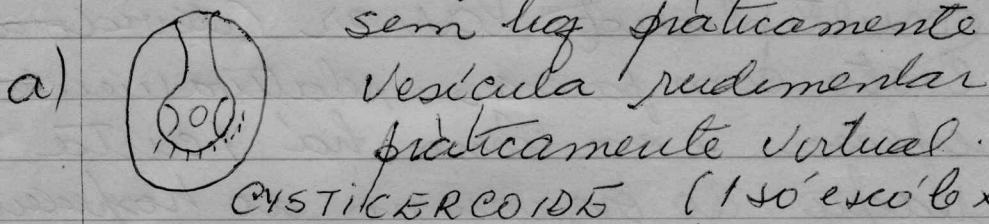 sem luz pràticamente
a) vesícula rudimentar
pràticamente virtual.
CYSTICERCOIDE (1 só escólex